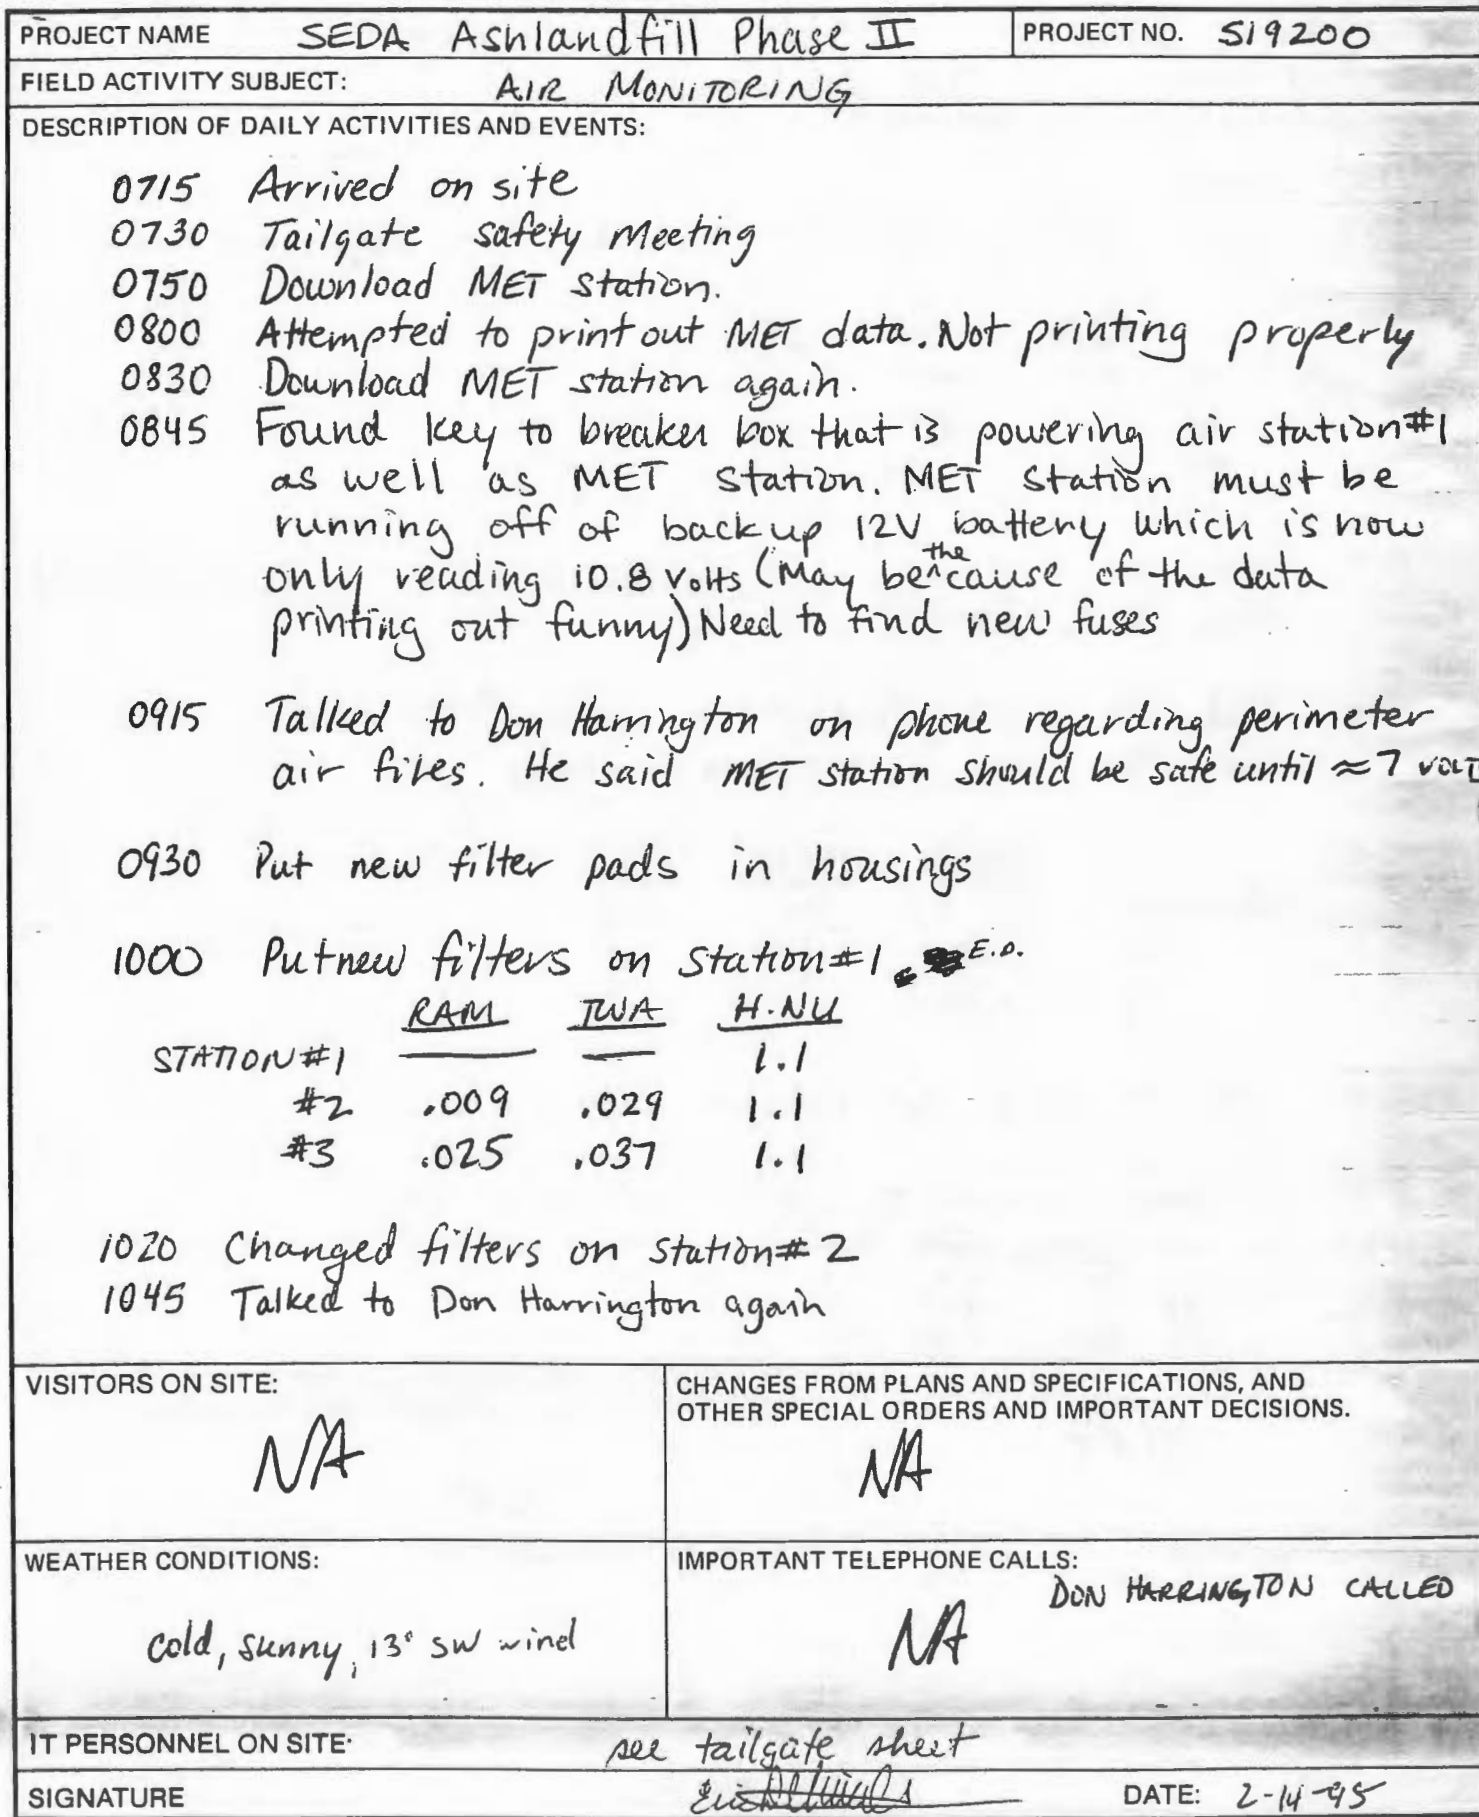 PROJECT NAME SEDA Ashlandfill Phase II PROJECT NO. 519200
FIELD ACTIVITY SUBJECT: AIR MONITORING
DESCRIPTION OF DAILY ACTIVITIES AND EVENTS:
0715 Arrived on site
0730 Tailgate safety Meeting
0750 Download MET station.
0800 Attempted to print out MET data. Not printing properly
0830 Download MET station again.
0845 Found key to breaker box that is powering air station #1
as well as MET station. MET station must be
running off of back up 12V battery which is now
only reading 10.8 Volts (May be the cause of the data
printing out funny) Need to find new fuses
0915 Talked to Don Harrington on phone regarding perimeter
air files. He said MET station should be safe until ≈ 7 VOLT
0930 Put new filter pads in housings
1000 Put new filters on station #1. E.D.
RAM TWA H.NU
STATION #1 — — 1.1
#2 .009 .029 1.1
#3 .025 .037 1.1
1020 Changed filters on station #2
1045 Talked to Don Harrington again
VISITORS ON SITE:
NA
CHANGES FROM PLANS AND SPECIFICATIONS, AND
OTHER SPECIAL ORDERS AND IMPORTANT DECISIONS.
NA
WEATHER CONDITIONS:
cold, sunny, 13° SW wind
IMPORTANT TELEPHONE CALLS:
DON HARRINGTON CALLED
NA
IT PERSONNEL ON SITE: see tailgate sheet
SIGNATURE DATE: 2-14-95